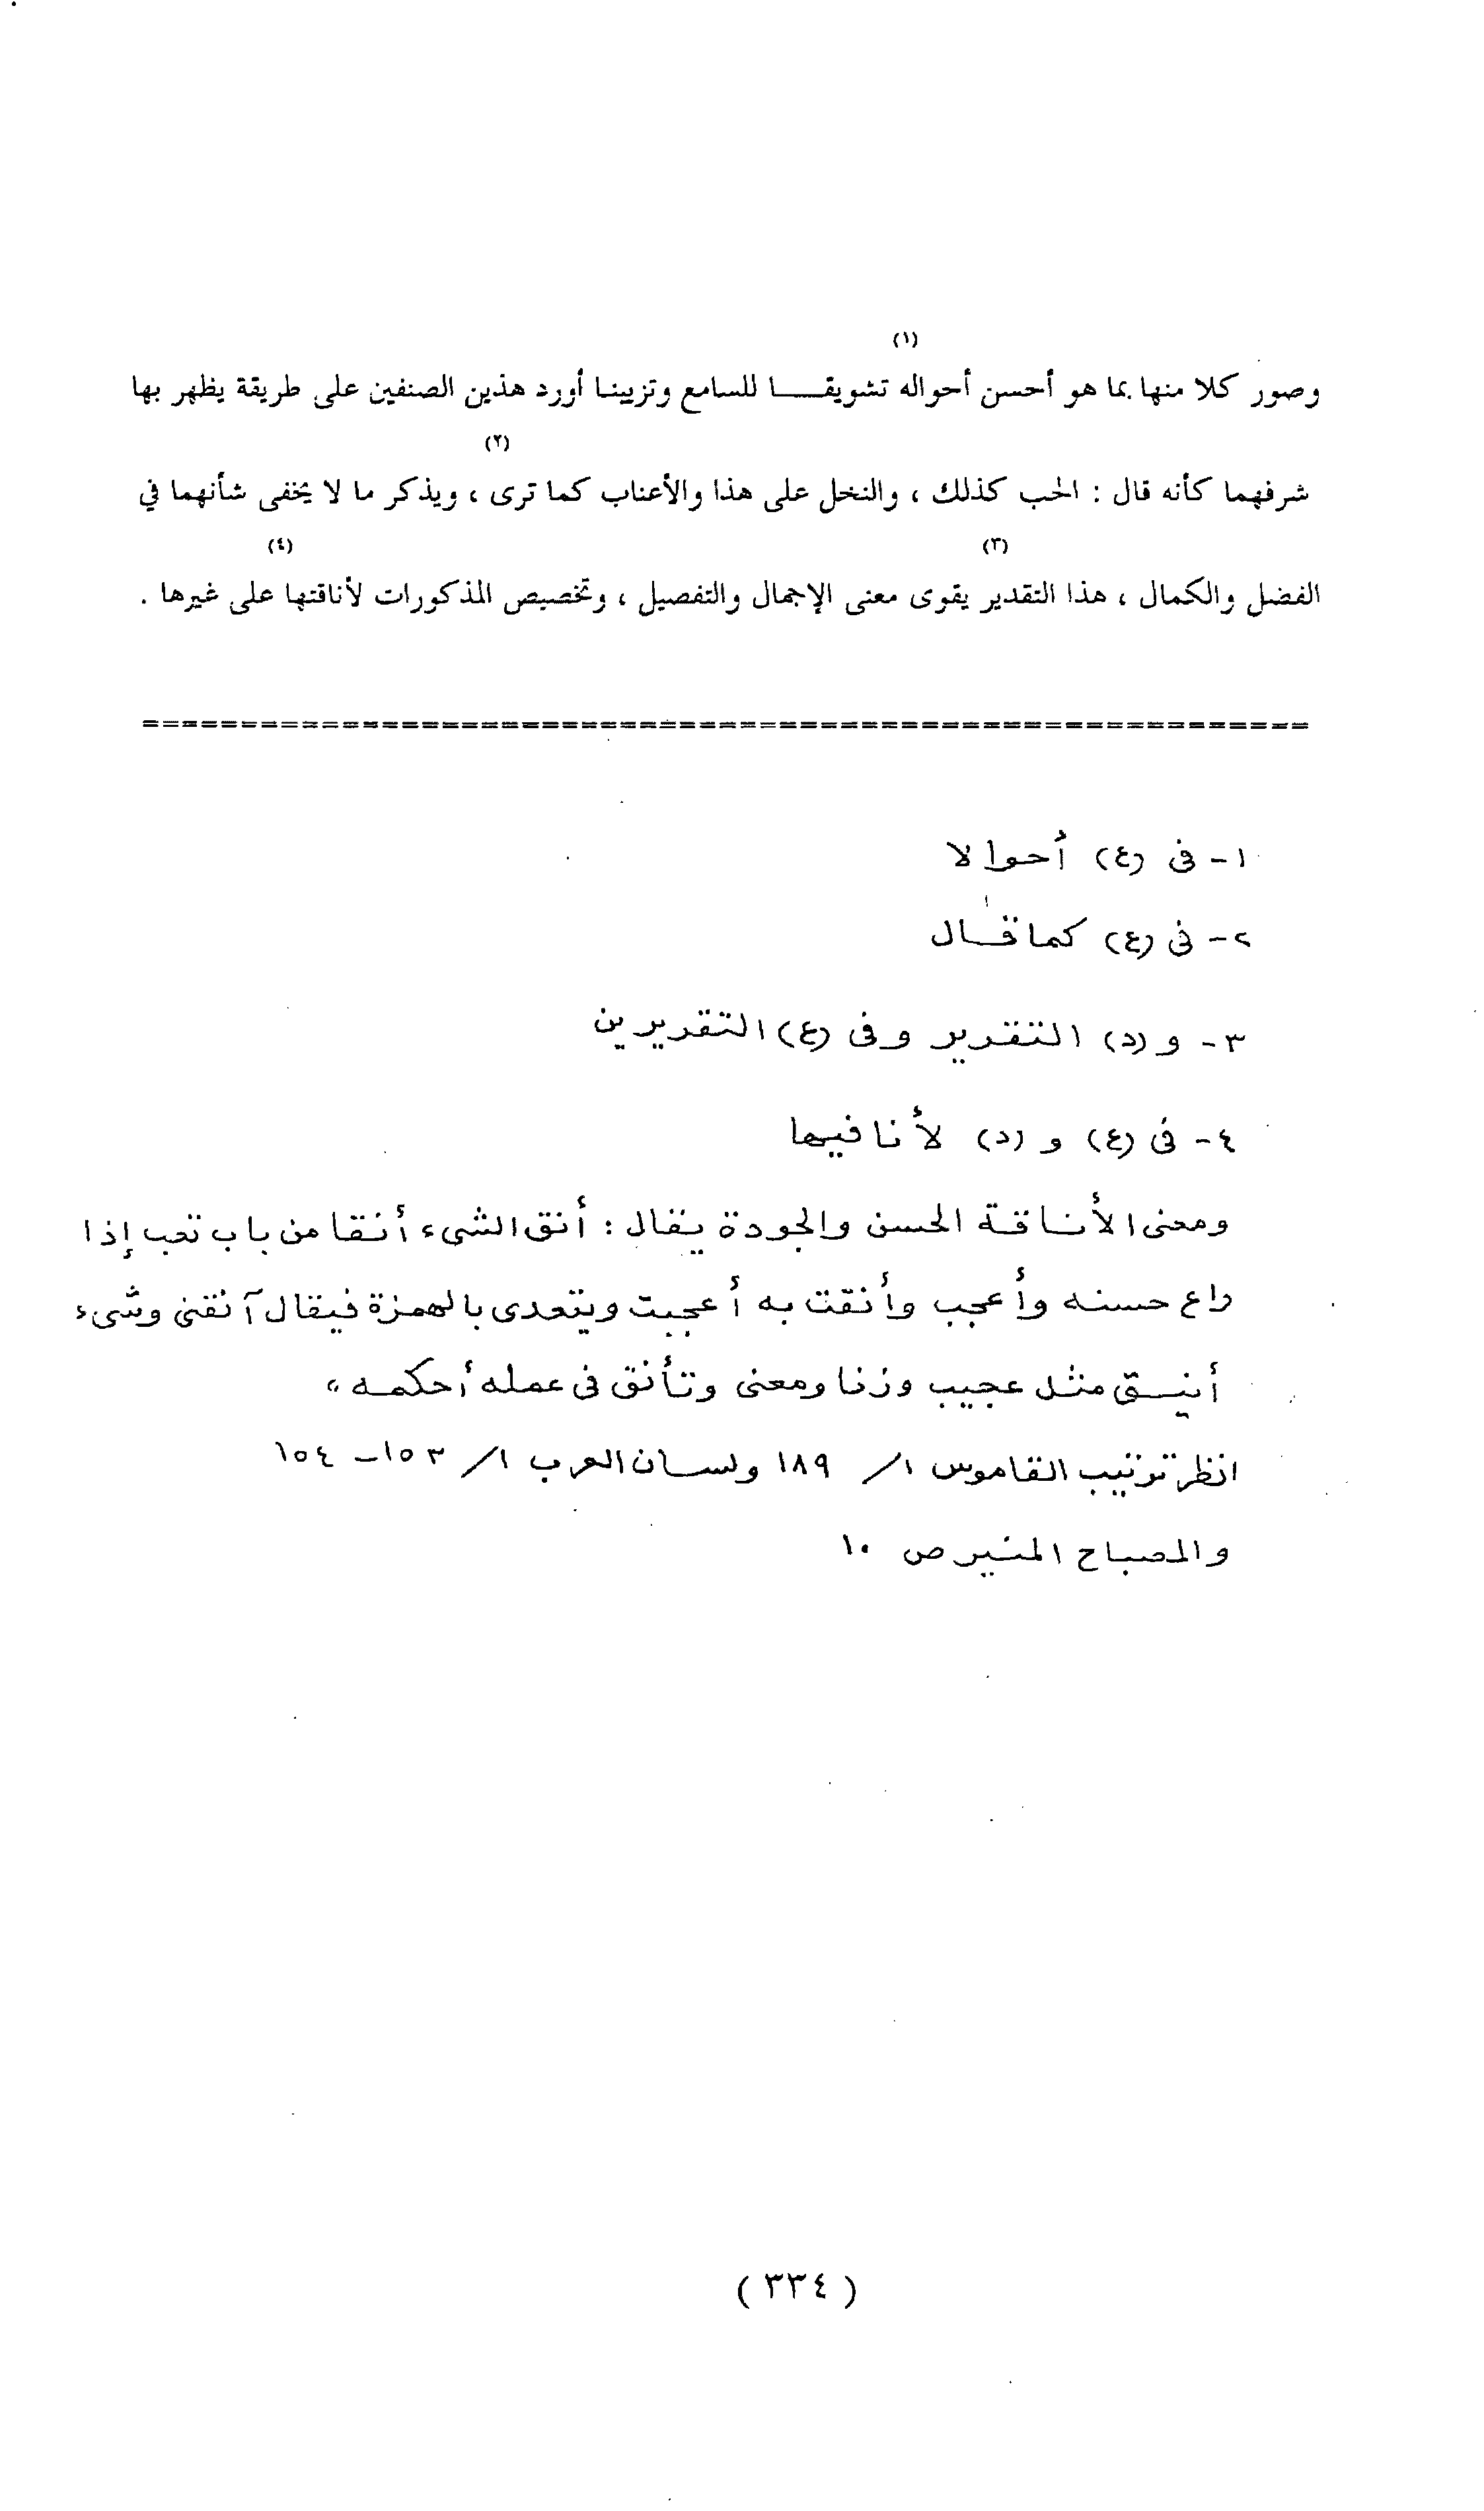 (١)
وصور كلا منها بما هو أحسن أحواله تشويقـــا للسامع وتزيينا أورد هذين الصنفين على طريقة يظهر بها
(٢)
شرفهما كأنه قال : الحب كذلك ، والنخل على هذا والأعناب كما ترى ، ويذكر ما لا يخفى شأنهما في
(٣) (٤)
الفضل والكمال ، هذا التقدير يقوى معنى الإجمال والتفصيل ، وتخصيص المذكورات لأناقتها على غيرها .
==========================================================
١- فى (ع) أحوالا
٢- فى (ع) كما قال
٣- و (د) التقرير وفى (ع) التقريرين
٤- فى (ع) و (د) لأنا فيها
ومعنى الأناقة الحسن والجودة يقال : أنق الشىء أنقا من باب تعب إذا
راع حسنه وأعجب وأنقت به أعجبت ويتعدى بالهمزة فيقال آنقنى وشىء
أنيق مثل عجيب وزنا ومعنى وتأنق فى عمله أحكمه "
انظر ترتيب القاموس ١/ ١٨٩ ولسان العرب ١/ ١٥٣ - ١٥٤
والمصباح المنير ص ١٠
( ٣٣٤ )